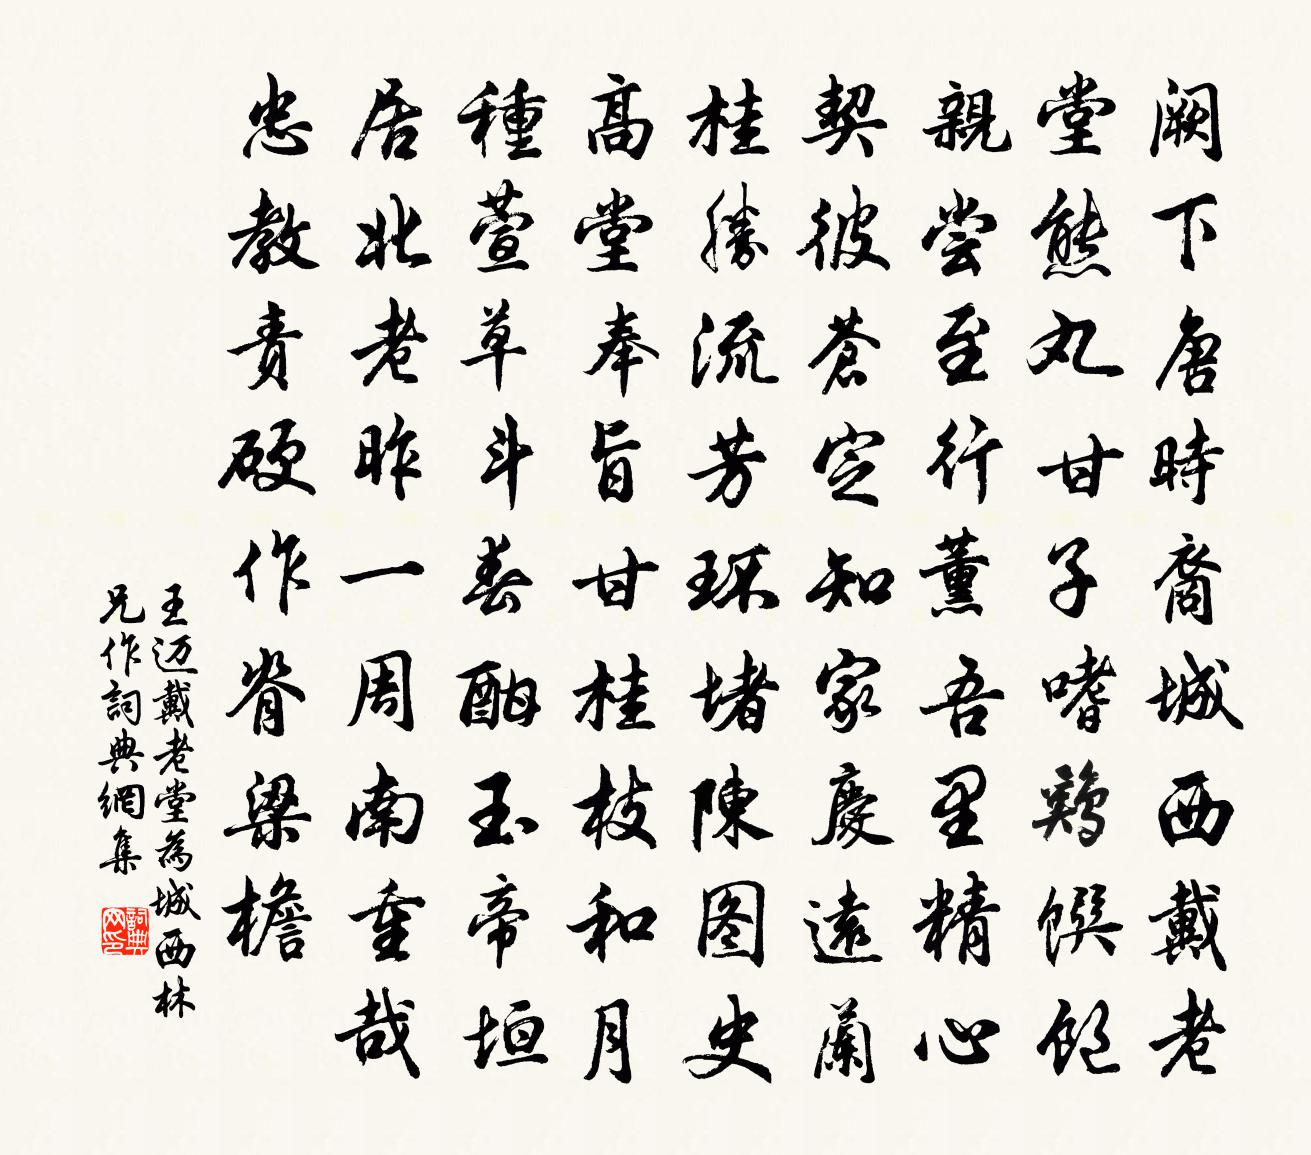 阙下唐時裔城西戴老
堂熊丸甘子嗜鷄饌飽
親尝至行薰吾里精心
契彼蒼定知家慶遠蘭
桂勝流芳環堵陳图史
高堂奉旨甘桂枝和月
種萱草斗春酣玉帝垣
居北老昨一周南重哉
忠教责硬作脊梁檐
王迈戴老堂為城西林
兄作詞典網集
詞典网印